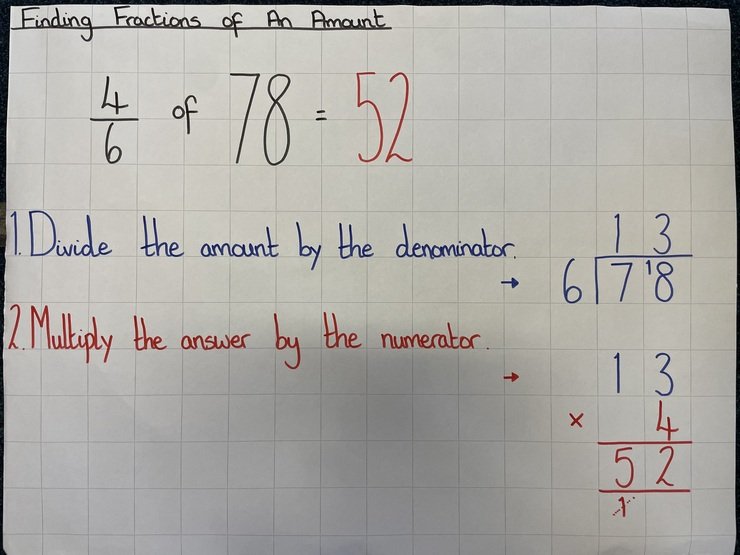 Finding Fractions of An Amount
4/6 of 78 = 52
1. Divide the amount by the denominator.
→ 1 3
6 7 ¹8
2. Multiply the answer by the numerator.
→ 1 3
× 4
5 2
1